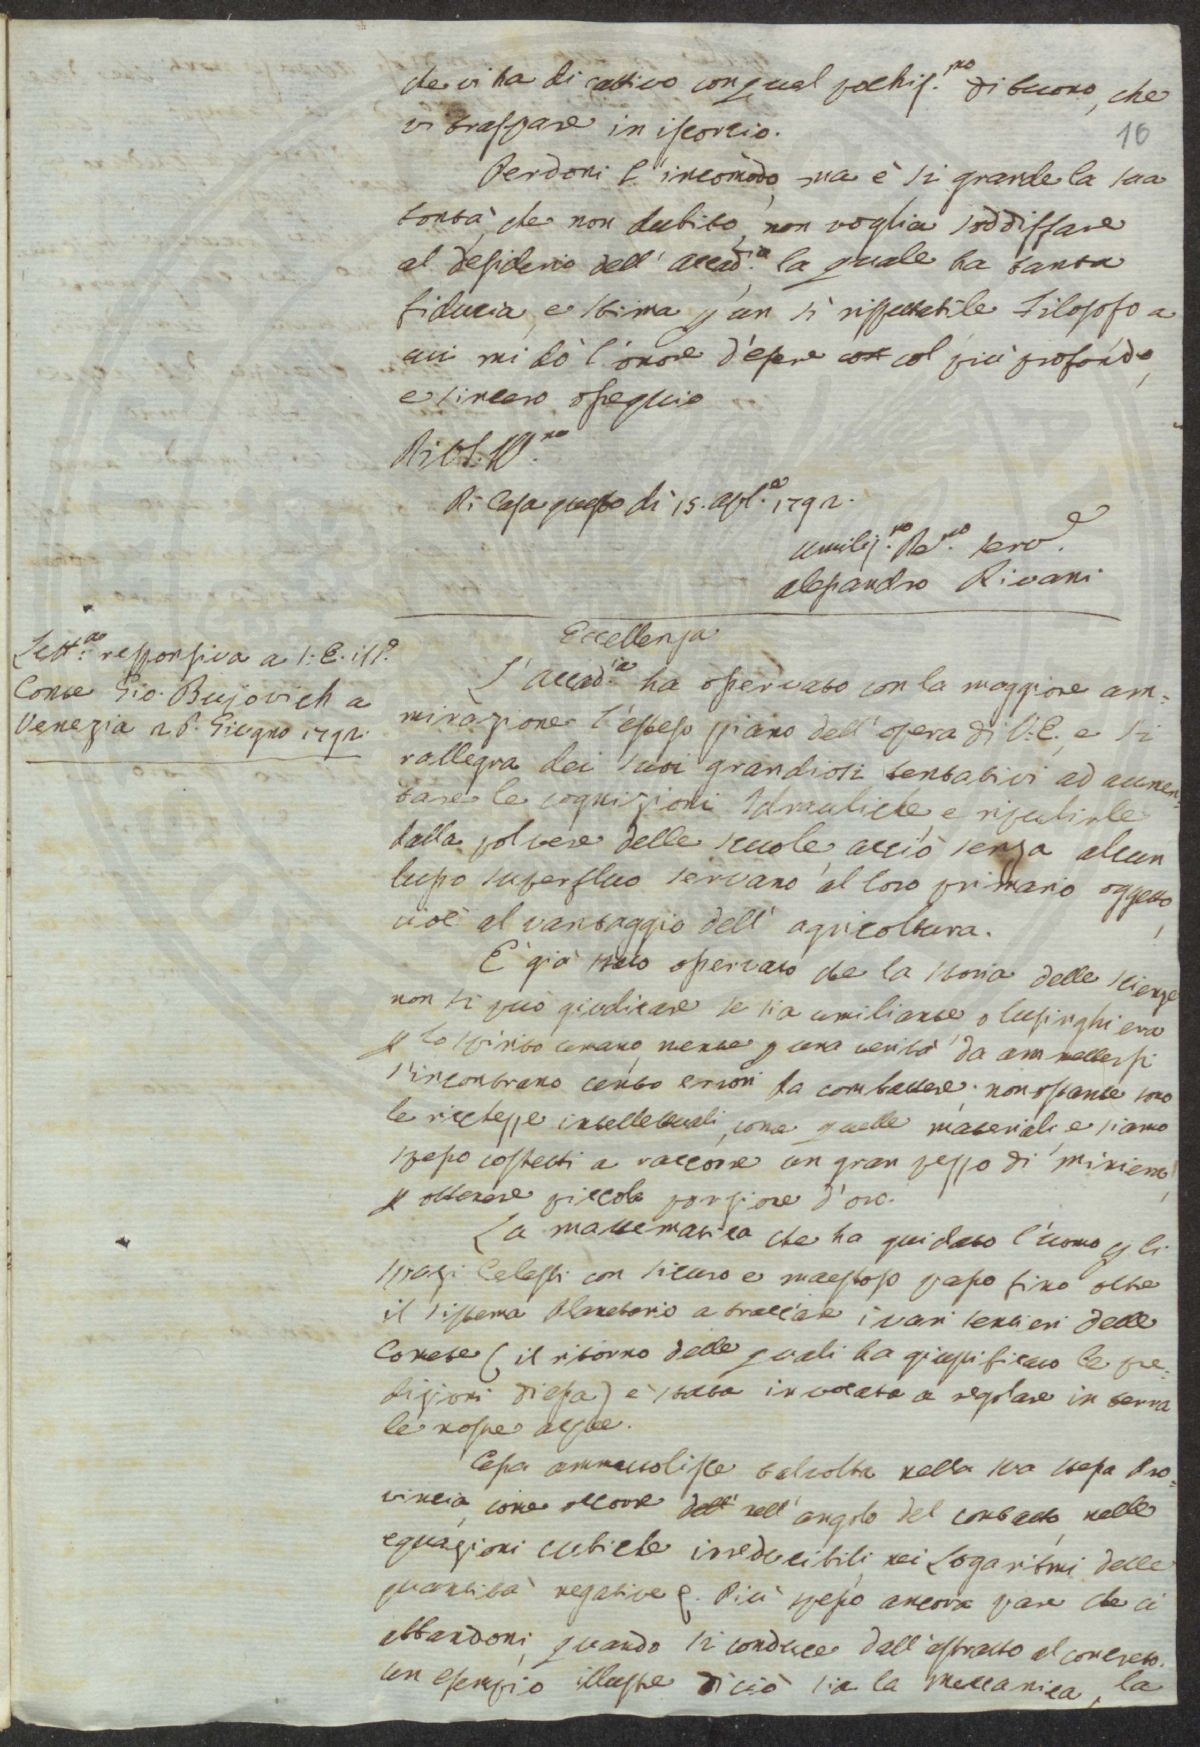 che vi ha di cattivo con quel pochiss.mo di buono, che
vi traspare in iscorcio.
16
Perdoni l'incomodo, ma è sì grande la sua
bontà, che non dubito, non voglia soddisfare
al desiderio dell'Accad.ia la quale ha tanta
fiducia, e stima p un sì rispettabile Filosofo a
cui mi dò l'onore d'essere col più profondo,
e sincero ossequio
Di Casa questo dì 15. apl.e 1792.
Umiliss.mo Serv.e
Alessandro Rivani
Lett.a responsiva a S. E. ill.o
Conte Gio. Bujovich a
Venezia 28. Giugno 1792.
Eccellenza
L'Accad.ia ha osservato con la maggiore am=
mirazione l'esteso piano dell'opera di V. E., e si
rallegra dei suoi grandiosi tentativi ad aumen=
tare le cognizioni Idrauliche, e ripulirle
dalla polvere delle scuole, acciò senza alcun
lusso superfluo servano al loro primario oggetto,
cioè al vantaggio dell'agricoltura.
È già stato osservato che la storia delle scienze
non si può giudicare se sia umiliante, o lusinghiera
p lo spirito umano, mentre p una verità da ammettersi
s'incontrano cento errori da combattere; nonostante sono
le ricchezze intellettuali, come quelle materiali, e siamo
spesso costretti a raccorre un gran pezzo di miniera,
p ottenere piccola porzione d'oro.
La mattematica che ha guidato l'uomo p li
spazi Celesti con sicuro e maestoso passo fino oltre
il sistema Planetario a tracciare i vari sentieri delle
Comete (il ritorno delle quali ha giustificato le pre=
dizioni d'essa) è stata invocata a regolare in terra
le nostre acque.
Essa ammutolisce talvolta nella sua stessa Pro=
vincia, come occorre dell' nell'angolo del contatto, nelle
equazioni cubiche irreducibili, nei Logaritmi delle
quantità negative &. Più spesso ancora pare che ci
abbandoni, quando si conduce dall'astratto al concreto.
un esempio illustre di ciò sia la Meccanica, la